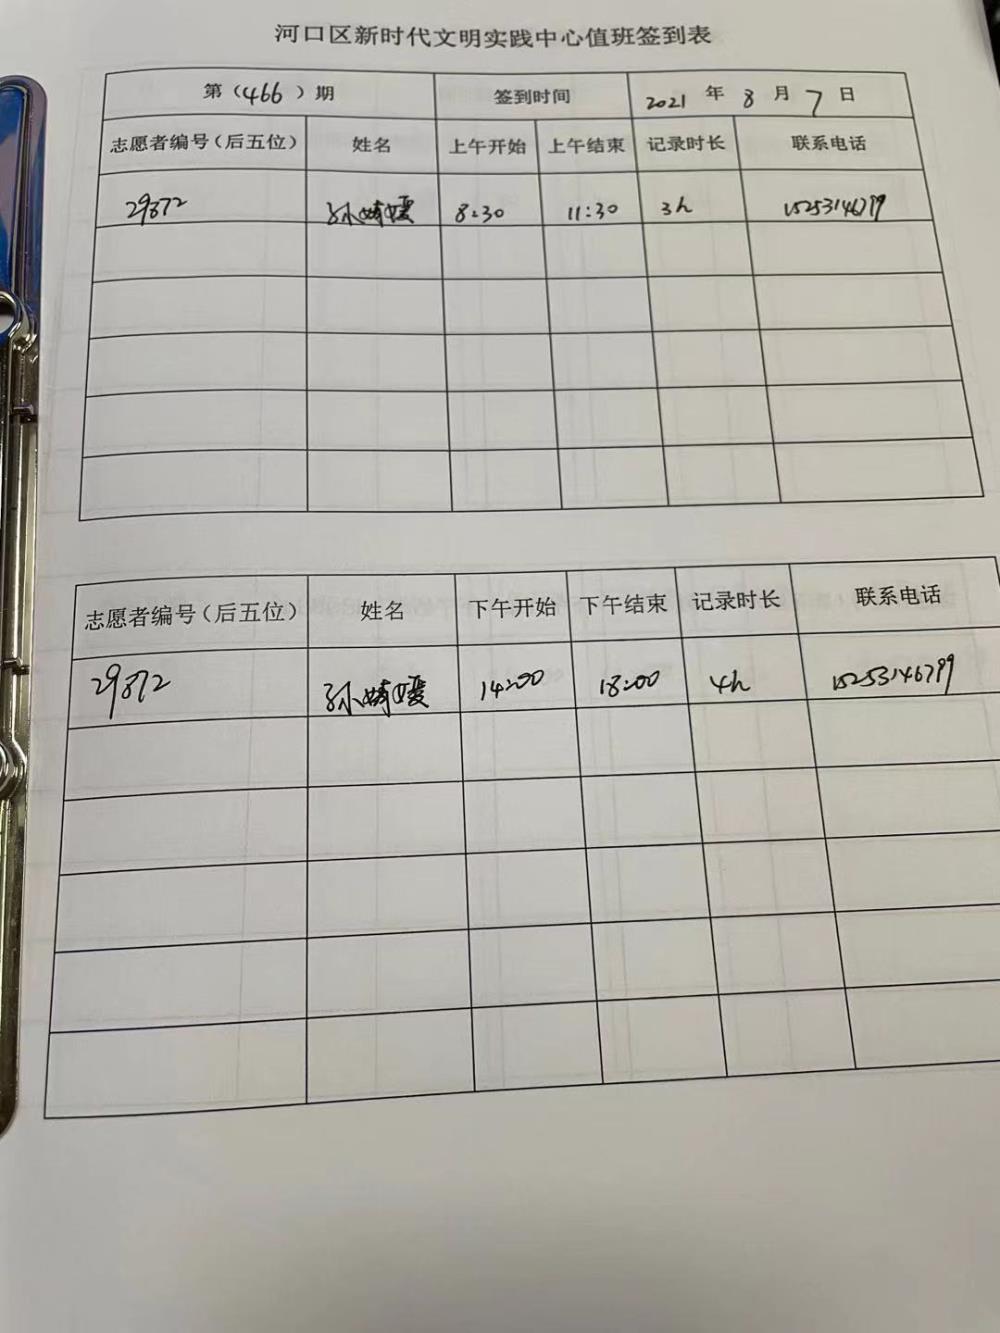 河口区新时代文明实践中心值班签到表
第（466）期 签到时间 2021 年 8 月 7 日
志愿者编号（后五位） 姓名 上午开始 上午结束 记录时长 联系电话
29872 孙婧媛 8:30 11:30 3h
志愿者编号（后五位） 姓名 下午开始 下午结束 记录时长 联系电话
29872 孙婧媛 14:00 18:00 4h